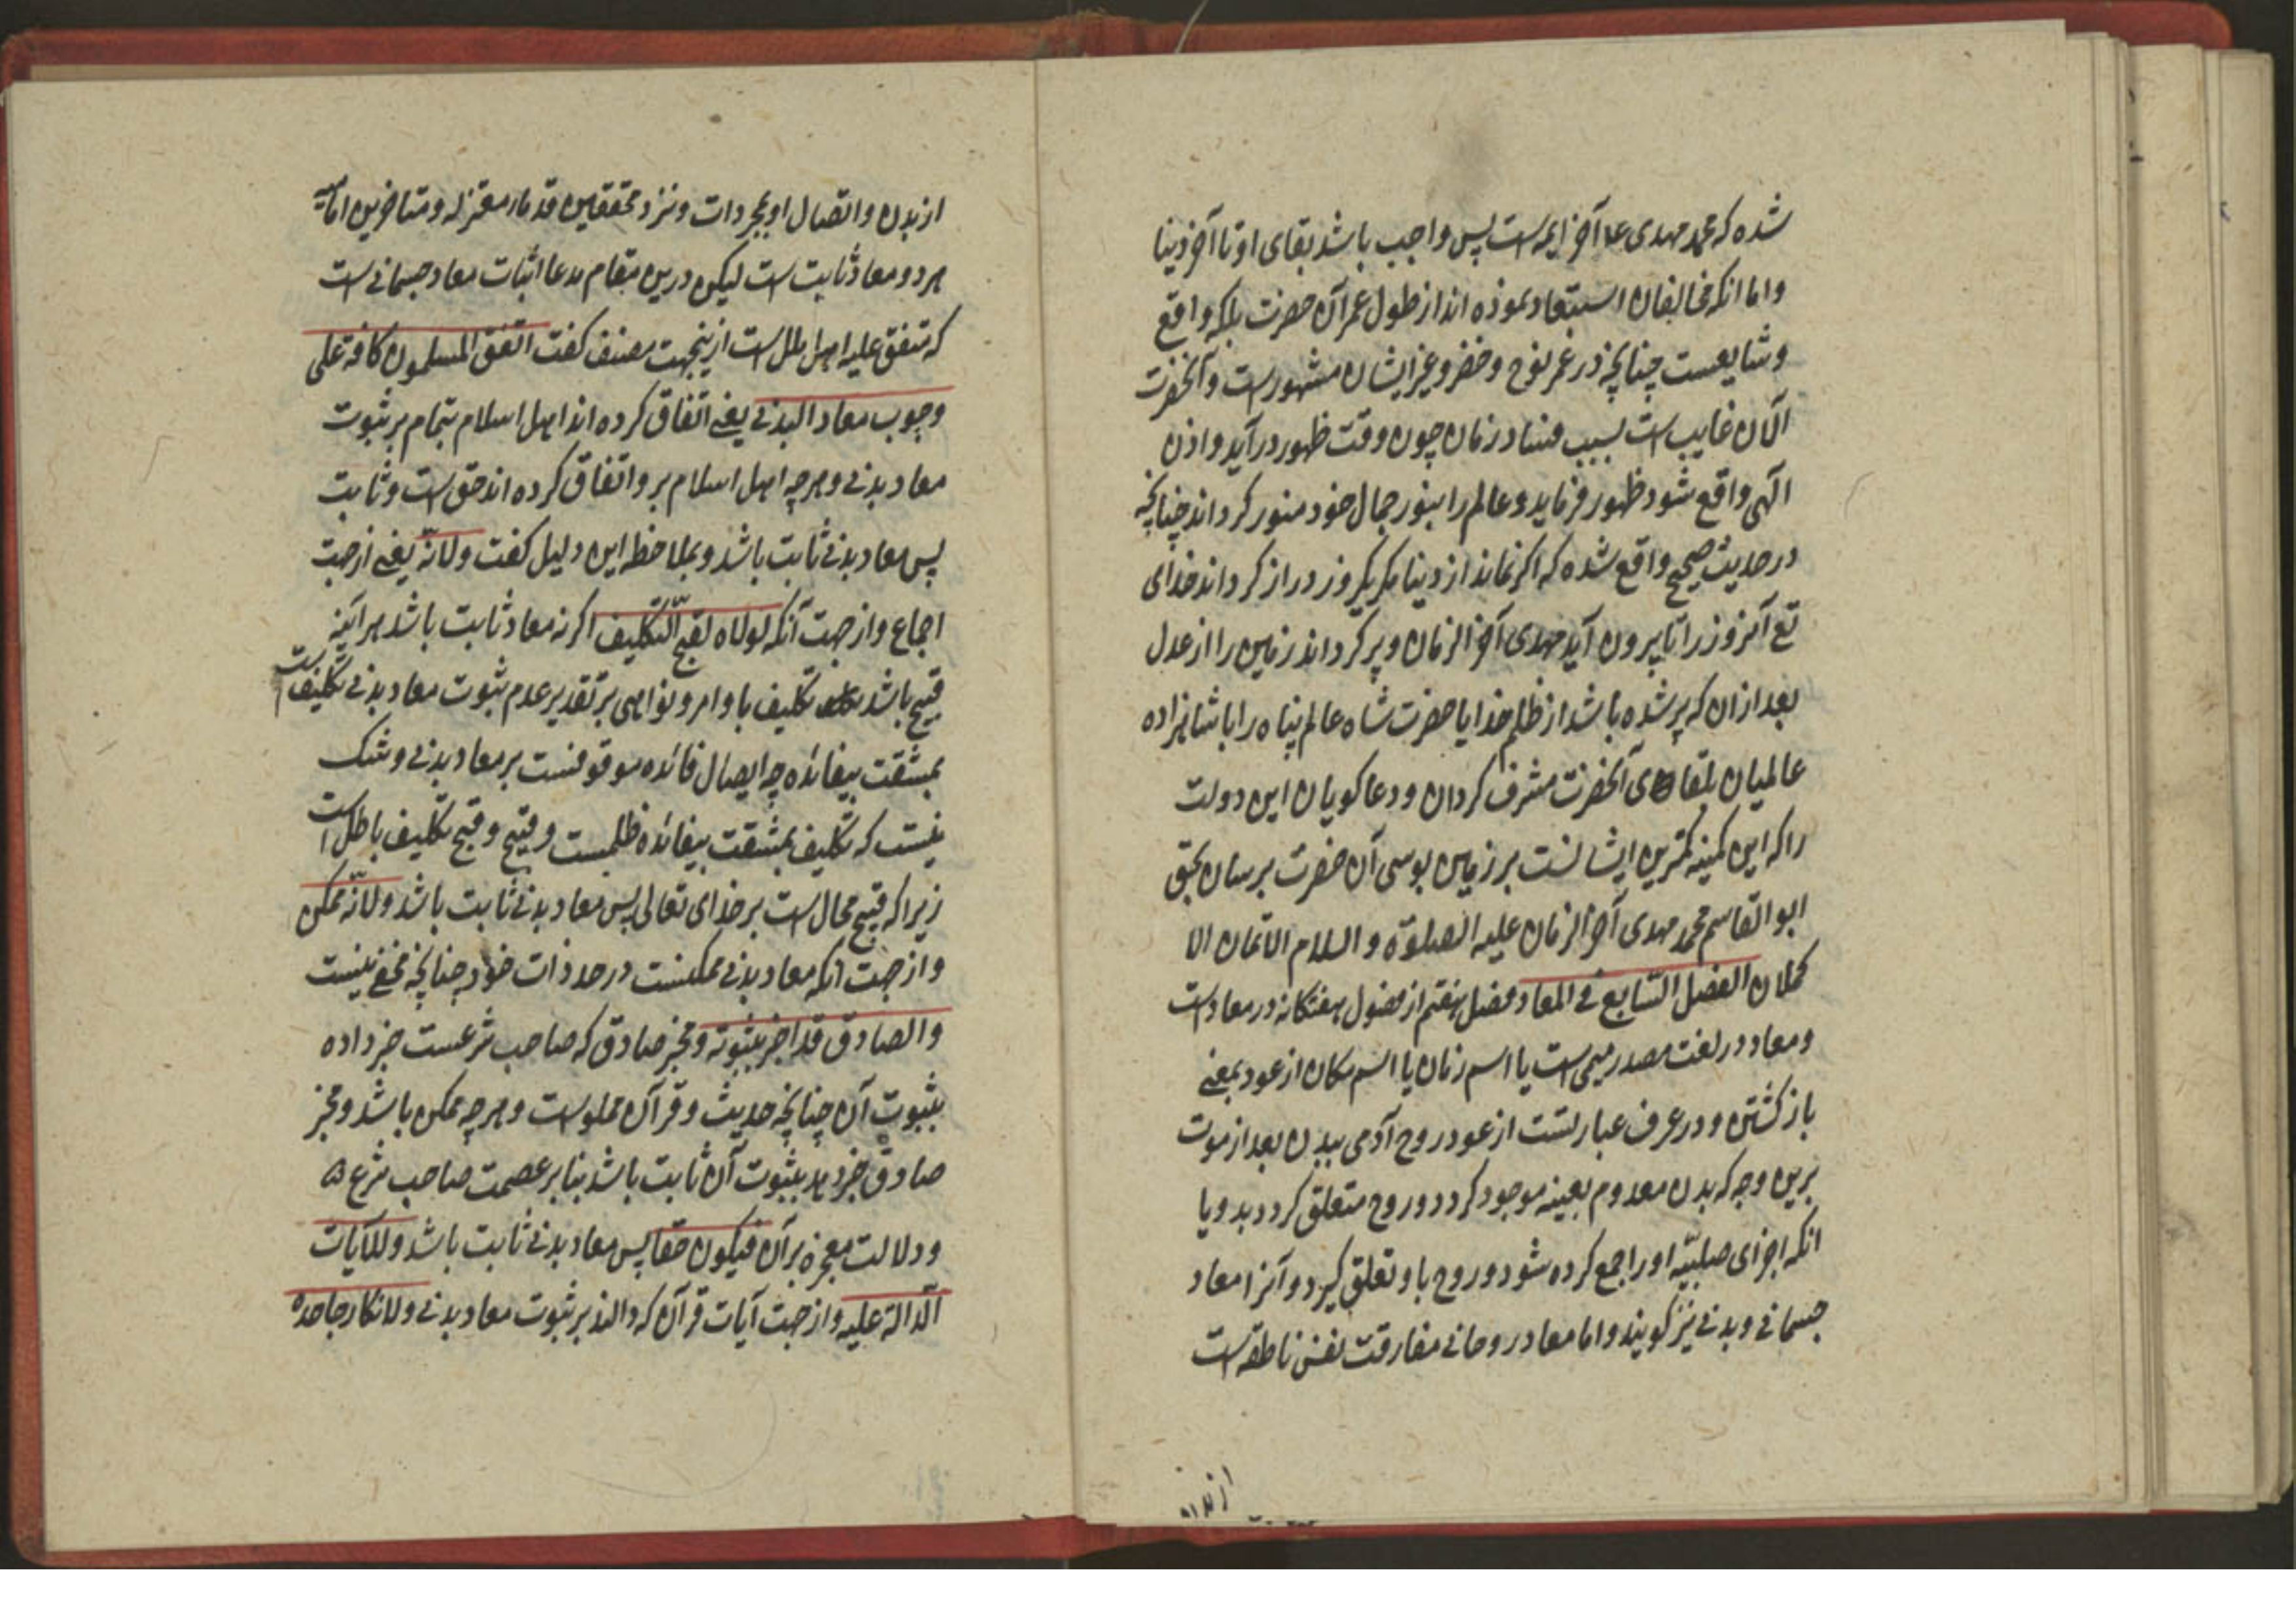 شده که محمد مهدی ع آخر ایمه است پس واجب باشد بقای او تا آخر دنیا
و اما انکه مخالفان استبعاد نموده اند از طول عمر آن حضرت بلکه واقع
و شایعست چنانچه در عمر نوح و خضر و غیر ایشان مشهورست و آنحضرت
الآن غایب است بسبب فساد زمان چون وقت ظهور درآید و اذن
الهی واقع شود ظهور فرماید و عالم را بنور جمال خود منور کرداند چنانچه
در حدیث صحیح واقع شده که اکر نماند از دنیا مکر یکروز دراز کرداند خدای
تع آنروز را تا بیرون آید مهدی آخر الزمان و پر کرداند زمین را از عدل
بعد ازان که پر شده باشد از ظلم خدایا حضرت شاه عالم پناه را با شاهزاده
عالمیان بلقای آنحضرت مشرف کردان و دعا کویان این دولت
را که این کمینه کمترین ایشانست بر زمین بوسی آن حضرت برسان بحق
ابو القاسم محمد مهدی آخر الزمان علیه الصلوة و السلام الاتمان الا
کملان الفصل السابع فی المعاد فصل هفتم از فصول هفتکانه در معاد است
و معاد در لغت مصدر میمی است یا اسم زمان یا اسم مکان از عود بمعنی
باز کشتن و در عرف عبارتست از عود روح آدمی ببدن بعد از موت
برین وجه که بدن معدوم بعینه موجود کردد و روح متعلق کردد بدو یا
انکه اجزای صلبیّه او را جمع کرده شود و روح باو تعلق کیرد و آنرا معاد
جسمانی و بدنی نیز کویند و اما معاد روحانی مفارقت نفس ناطقه است
از بدن
از بدن و اتصال او بمجردات و نزد محققین قدماء معتزله و متاخرین امامیه
هر دو معاد ثابت است لیکن درین مقام مدعا اثبات معاد جسمانی است
که متفق علیه اهل ملل است ازینجهت مصنف کفت اتفق المسلمون کافة علی
وجوب معاد البدنی یعنی اتفاق کرده اند اهل اسلام بتمام بر ثبوت
معاد بدنی و هر چه اهل اسلام برو اتفاق کرده اند حق است و ثابت
پس معاد بدنی ثابت باشد و بملاحظه این دلیل کفت و لانّه یعنی از جهت
اجماع و از جهت آنکه لولاه لقبح التّکلیف اکر نه معاد ثابت باشد هر آینه
قبیح باشد تکلیف باوامر و نواهی بر تقدیر عدم ثبوت معاد بدنی تکلیف است
بمشقت بیفائده چه ایصال فائده موقوفست بر معاد بدنی و شک
نیست که تکلیف بمشقت بیفائده ظلمست و قبیح و قبح تکلیف باطل است
زیرا که قبیح محال است بر خدای تعالی پس معاد بدنی ثابت باشد و لانّه ممکن
و از جهت آنکه معاد بدنی ممکنست در حد ذات خود چنانچه مخفی نیست
و الصادق قد اخبر بثبوته و مخبر صادق که صاحب شرعست خبر داده
بثبوت آن چنانچه حدیث و قرآن مملوست و هر چه ممکن باشد و مخبر
صادق خبر دهد بثبوت آن ثابت باشد بنا بر عصمت صاحب شرع
و دلالت معجزه بر آن فیکون حقا پس معاد بدنی ثابت باشد و للآیات
الدالة علیه و از جهت آیات قرآن که دالند بر ثبوت معاد بدنی و لانکار جاحده